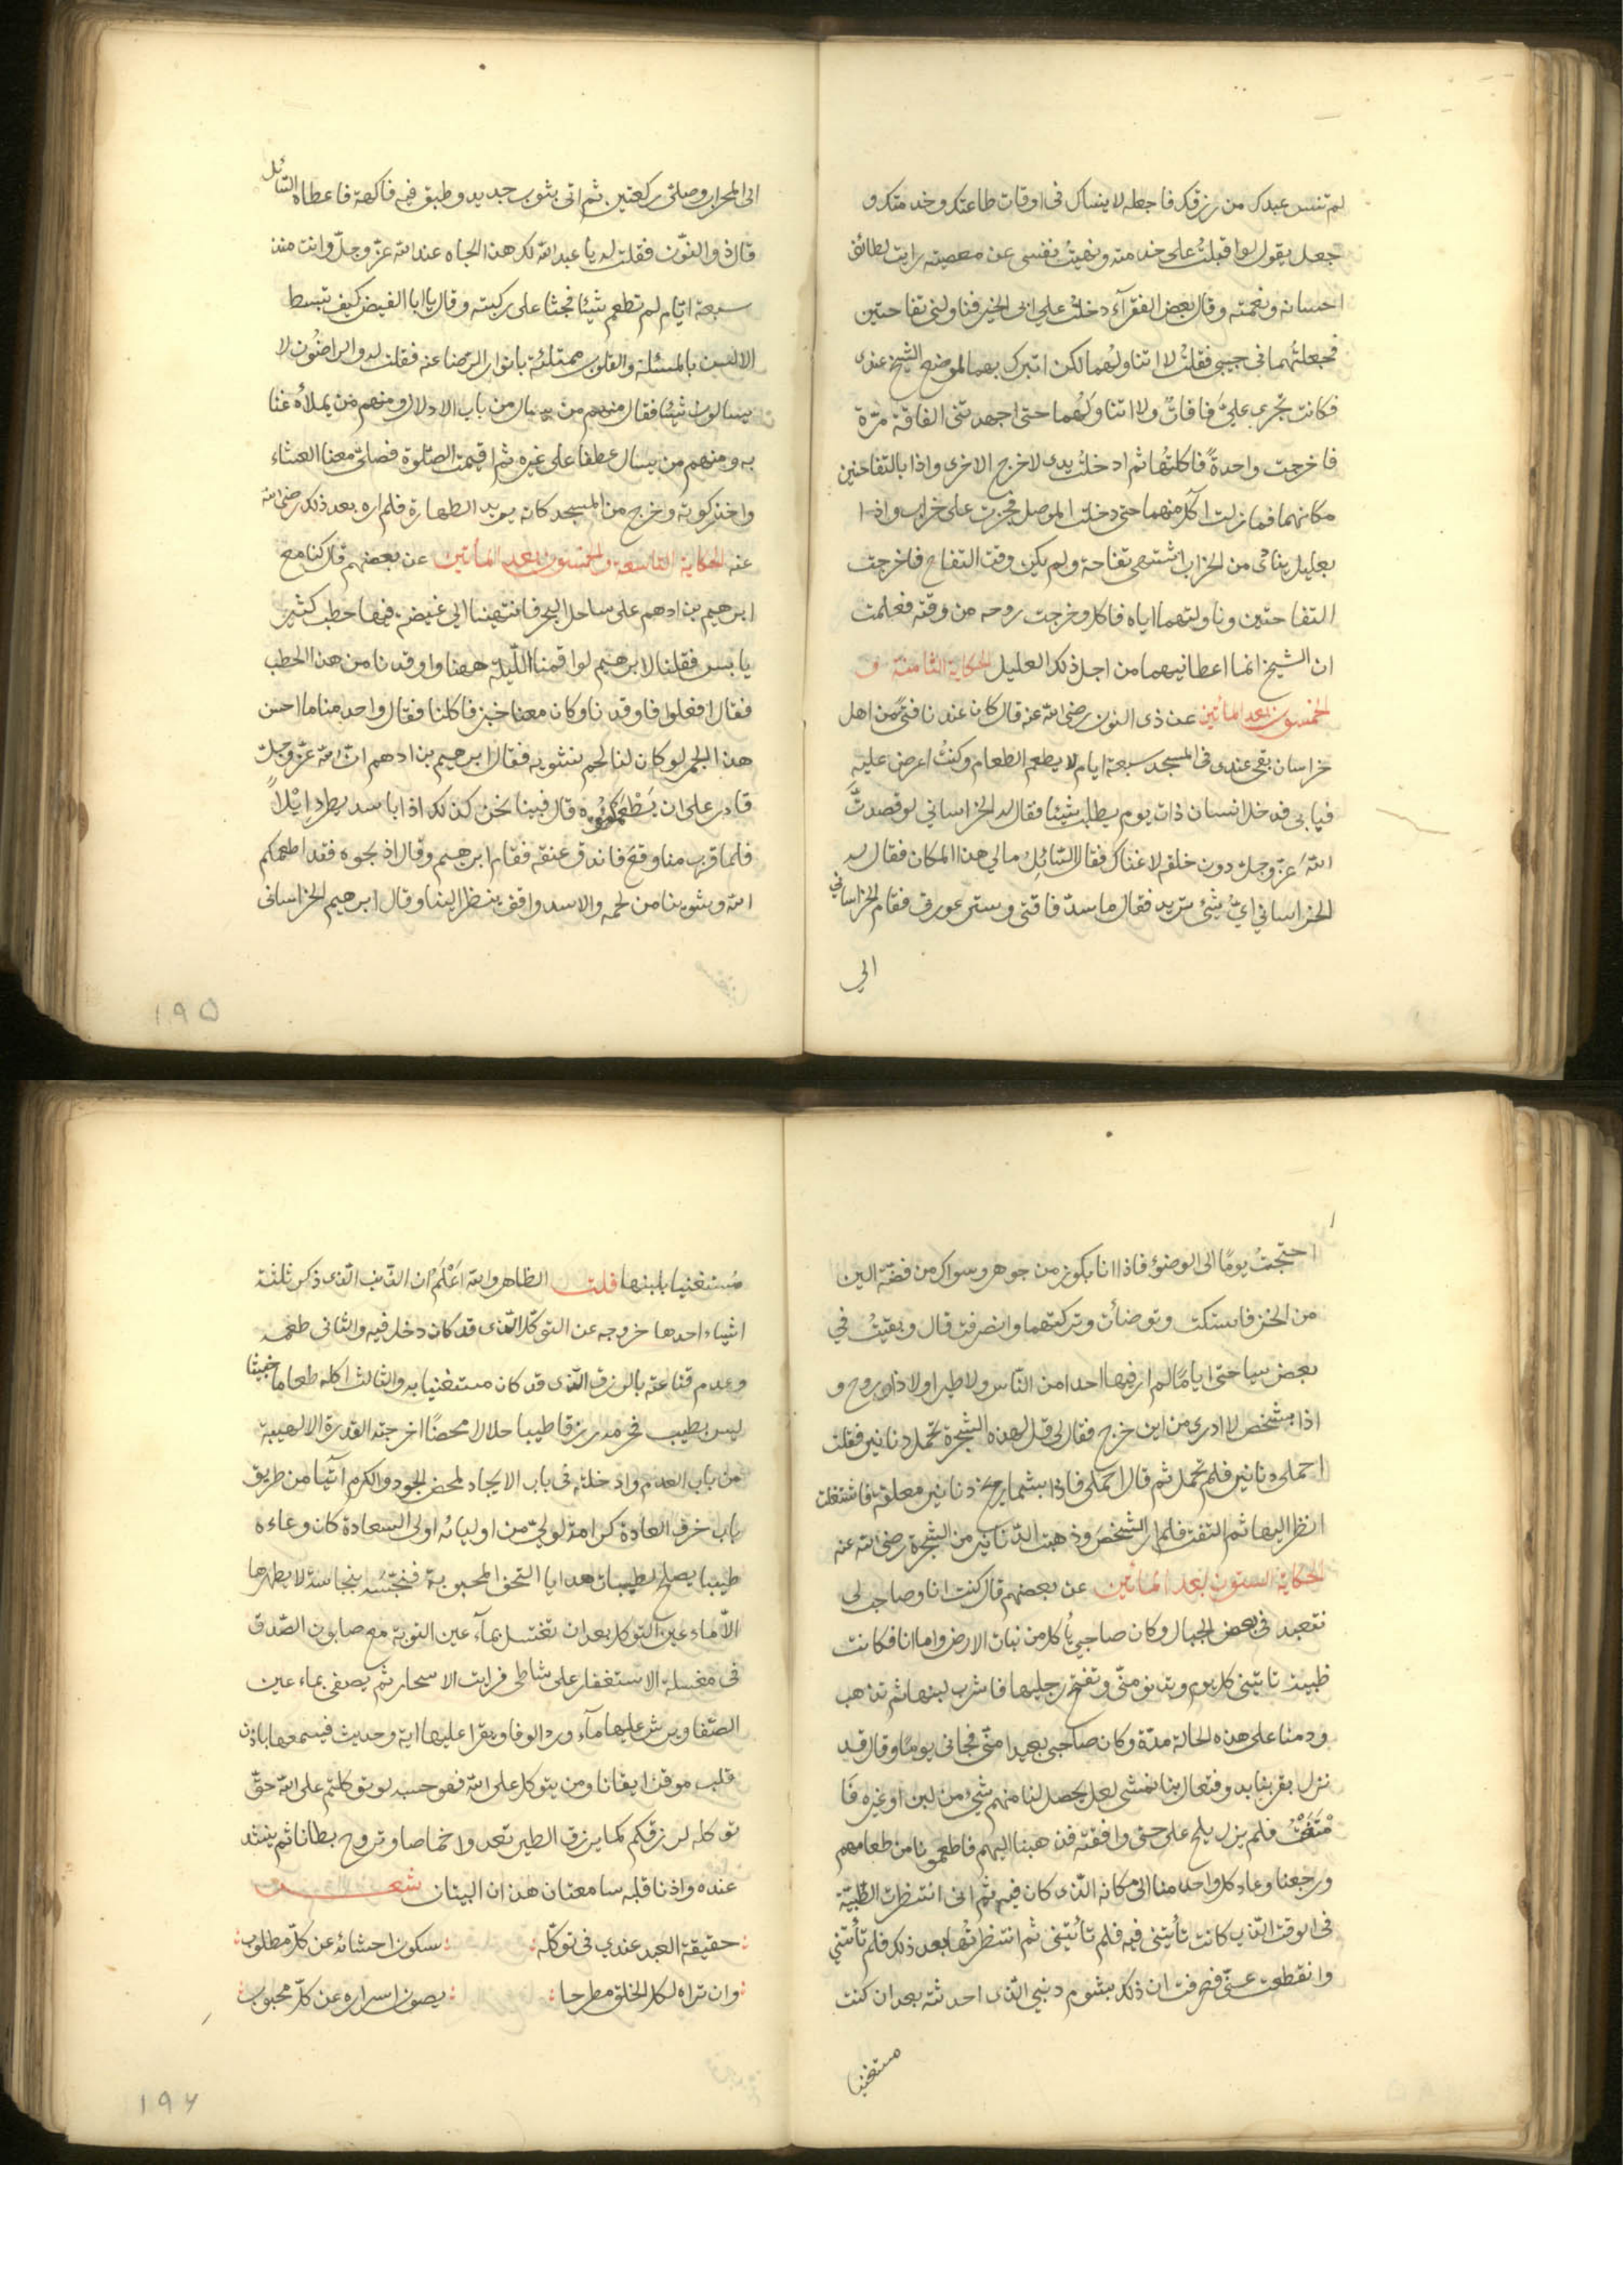 لم تنس عبدك من رزقك فاجعله لا ينساك فى اوقات طاعتك وخدمتك و
جعل يقول لو اقبلتُ على خدمته ونهيتُ نفسى عن معصيته رايت لطائف
احسانه ونعمته وقال بعض الفقرآء دخلتُ على ابى الخير فناولنى تفاحتين
فجعلتُهما فى جيبى فقلتُ لا اتناولُهما لكن اتبرك بهما لموضع الشيخ عندى
فكانت تجرى علىَّ فاقاتٌ ولا اتناولُهما حتى اجهدتنى الفاقة مرّة
فاخرجت واحدةً فاكلتُها ثم ادخلتُ يدى لاخرج الاخرى واذا بالتفاحتين
مكانهما فما زلت آكل منهما حتى دخلت الموصل فجزت على خراب واذا
بعليل ينادى من الخراب اشتهى تفاحة ولم يكن وقت التفاح فاخرجت
التفاحتين وناولتهما اياه فاكل وخرجت روحه من وقته فعلمت
ان الشيخ انما اعطانيهما من اجل ذلك العليل الحكاية الثامنة و
الخمسون بعد المأتين عن ذى النون رضى الله عنه قال كان عندنا فتىً من اهل
خراسان بقى عندى فى المسجد سبعة ايام لا يطعم الطعام وكنتُ اعرض عليه
فيابى فدخل انسان ذات يوم يطلب شيئا فقال له الخراسانى لو قصدتَّ
اللهَ عزّ وجلّ دون خلقه لاغناك فقال السّائِل مالى هذا المكان فقال له
الخراسانى اىّ شئ تريد فقال ما سدّ فاقتى وستر عورتى فقام الخراسانى
الى
الى المحراب وصلّى ركعتين ثم اتى بثوب جديد وطبق فيه فاكهة فاعطاه السّائل
قال ذو النّون فقلت له يا عبد الله لك هذا الجاه عند الله عزّ وجلّ وانت منذ
سبعة ايّام لم تطعم شيئا فجثا على ركبته وقال يا ابا الفيض كيف تبسط
الالسن بالمسئلة والقلوب ممتلئة بانوار الرّضا عنه فقلت له والراضُون لا
يسالون شيئا فقال منهم من يسال من باب الادلال ومنهم مَن يملأه غنا
به ومنهم من يسال عطفا على غيره ثم اقيمت الصّلوة فصلّى معنا العشاء
واخذ ركوته وخرج من المسجد كانه يريد الطهارة فلم اره بعد ذلك رضى الله
عنه الحكاية التاسعة والخمسون بعد المأتين عن بعضهم قال كنا مع
ابرهيم بن ادهم على ساحل البحر فانتهينا الى غيضة فيها حطب كثير
يابس فقلنا لابرهيم لو اقمنا اللّيلة ههنا واوقدنا من هذا الحطب
فقال افعلوا فاوقدنا وكان معنا خبز فاكلنا فقال واحد منا ما احسن
هذا الجمر لو كان لنا لحم نشويه فقال ابرهيم بن ادهم انّ الله عزّ وجلّ
قادر على ان يُطْعِمَكُمُوه قال فبينا نحن كذلك اذا باسد يطرد ايّلاً
فلما قرب منا وقع فاندق عنقه فقام ابرهيم وقال اذبحوه فقد اطعمكم
الله وشوينا من لحمه والاسد واقف ينظر الينا وقال ابرهيم الخراسانى
١٩٥
احتجتُ يومًا الى الوضوء فاذا انا بكوز من جوهر وسواك من فضّة الين
من الخز فاستكت وتوضأت وتركتهما وانصرفت قال وبقيتُ فى
بعض سياحتى اياما لم ار فيها احدا من النّاس ولا طيرا ولا ذا روح و
اذا بشخص لا ادرى من اين خرج فقال لى قل لهذه الشجرة تحمل دنانير فقلت
احملى دنانير فلم تحمل ثم قال احملى فاذا بشماريخ دنانير معلقة فاشتغلت
انظر اليها ثم التفت فلم ار الشخصَ وذهبت الدّنانير من الشجرة رضى الله عنه
الحكاية الستون بعد المأتين عن بعضهم قال كنت انا وصاحب لى
نتعبد فى بعض الجبال وكان صاحبى يأكل من نبات الارض واما انا فكانت
ظبية تاتينى كل يوم وتدنو منّى وتفتح رجليها فاشرب لبنها ثم تذهب
ودمنا على هذه الحالة مدّة وكان صاحبى بعيدا منّى فجانى يومًا وقال قد
نزل بقربنا بدو فتعال بنا نمشى لعل يحصل لنا منهم شئ من لبن او غيره فَا
مْتَنَعْتُ فلم يزل يلح على حتى وافقته فذهبنا اليهم فاطعمونا من طعامهم
ورجعنا وعاد كل واحد منا الى مكانه الّذى كان فيه ثم انى انتظرت الظّبيّة
فى الوقت الّذى كانت تأتينى فيه فلم تأتينى ثم انتظرتُها بعد ذلك فلم تأتنى
وانقطعت عنّى فعرفت ان ذلك بشوم دنبى الّذى احدثته بعد ان كنت
مستغنيا
مُستغنيا بلبنها قلت الظاهر والله اَعْلَمُ ان الذّنب الّذى ذكر ثلثة
اشياء احدها خروجه عن التوكل الّذى قد كان دخل فيه والثانى طعمه
وعدم قناعته بالرزق الّذى قد كان مستغنيا به والثالث اكله طعاما خبيثا
ليس بطيب فحُرم رزقا طيبا حلالا محضًا اخرجته القدرة الالهيية
من باب العدم وادخلته فى باب الايجاد لمحض الجود والكرم آتيا من طريق
باب خرق العادة كرامة لولىّ من اوليائه اولى السعادة كان وعاءه
طيبا يصلح لطيبات هدايا التحف المحبوبة فنجّسه بنجاسة لا يطهرها
الّا ماء عين التوكل بعد ان تغتسل بمآء عين التوبة مع صابون الصّدق
فى مغسلة الاستغفار على شاطى فرات الاسحار ثم يصفى بماء عين
الصّفا ويرش عليها مآء ورد الوفا ويقرا عليها اية وحديث فيسمعها باذن
قلب موقن ايقانا ومن يتوكل على الله فهو حسبه لو توكلتم على الله حقّ
توكله لرزقكم كما يرزق الطير تغدوا خماصا وتروح بطانا ثم ينشد
عنده واذنا قلبه سامعتان هذان البيتان شعر
حقيقة العبد عندى فى توكّله سكون احشائه عن كلّ مطلوب
وان تراه لكل الخلق مطرحا يصون اسراره عن كلّ محبوب
١٩٦